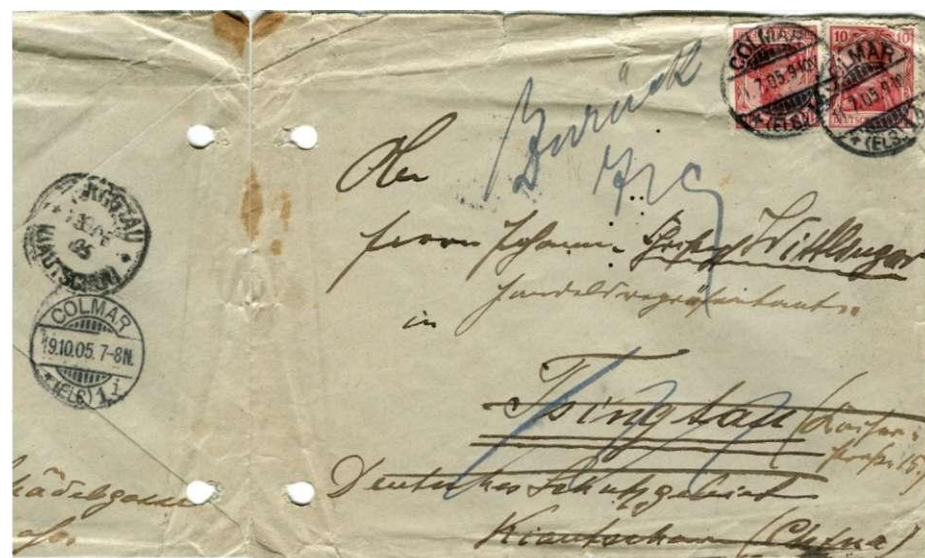 COLMAR
7.05.9-10V
(ELS.)
10 10
COLMAR
7.05.9-10V
(ELS.)
Zurück
An
Herrn Johann Wittlinger
Handelsrepräsentant.
in
Tsingtau (Kaiser-
straße 15)
Deutsches Schutzgebiet
Kiautschou (China)
TSINGTAU
05
KIAUTSCHOU
COLMAR
19.10.05. 7-8N.
(ELS)